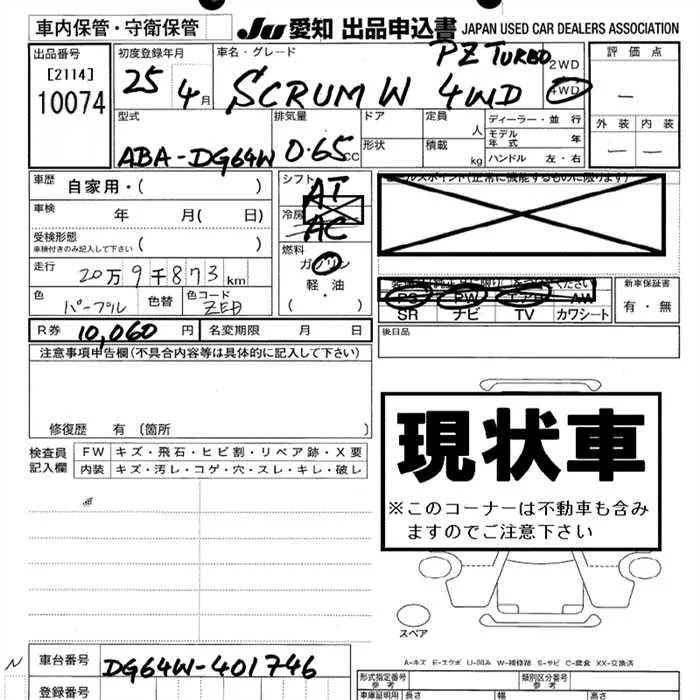 車内保管・守衛保管 JU 愛知 出品申込書 JAPAN USED CAR DEALERS ASSOCIATION
出品番号 初度登録年月 車名・グレード PZ TURBO 2WD 評価点
[2114] 25 4月 SCRUM W 4WD 4WD —
10074 外装 内装
型式 排気量 ドア 定員 人 ディーラー・並行 — —
ABA-DG64W 0.65 CC 形状 積載 kg モデル年式 年
ハンドル 左・右
車歴 自家用・( ) シフト AT
車検 年 月( 日) 冷房 AC
受検形態 車検付きのみ記入して下さい ( ) 燃料
ガソリン
走行 20万9千873km 軽・油
色 パープル 色替 色コード ZEB ( ・ )
PS PW エアB AW 新車保証書
SR ナビ TV カワシート 有・無
R券 10,060円 名変期限 月 日 後日品
注意事項申告欄(不具合内容等は具体的に記入して下さい)
修復歴 有 (箇所 )
検査員記入欄 FW キズ・飛石・ヒビ割・リペア跡・X要
内装 キズ・汚レ・コゲ・穴・スレ・キレ・破レ
現状車
※このコーナーは不動車も含み
ますのでご注意下さい
スペア
A-キズ E-エクボ U-凹み W-補修跡 S-サビ C-腐食 XX-交換済
N 車台番号 DG64W-401746 形式指定番号 参考 類別区分番号 参考
登録番号 車庫証明用 参考 長さ 幅 高さ